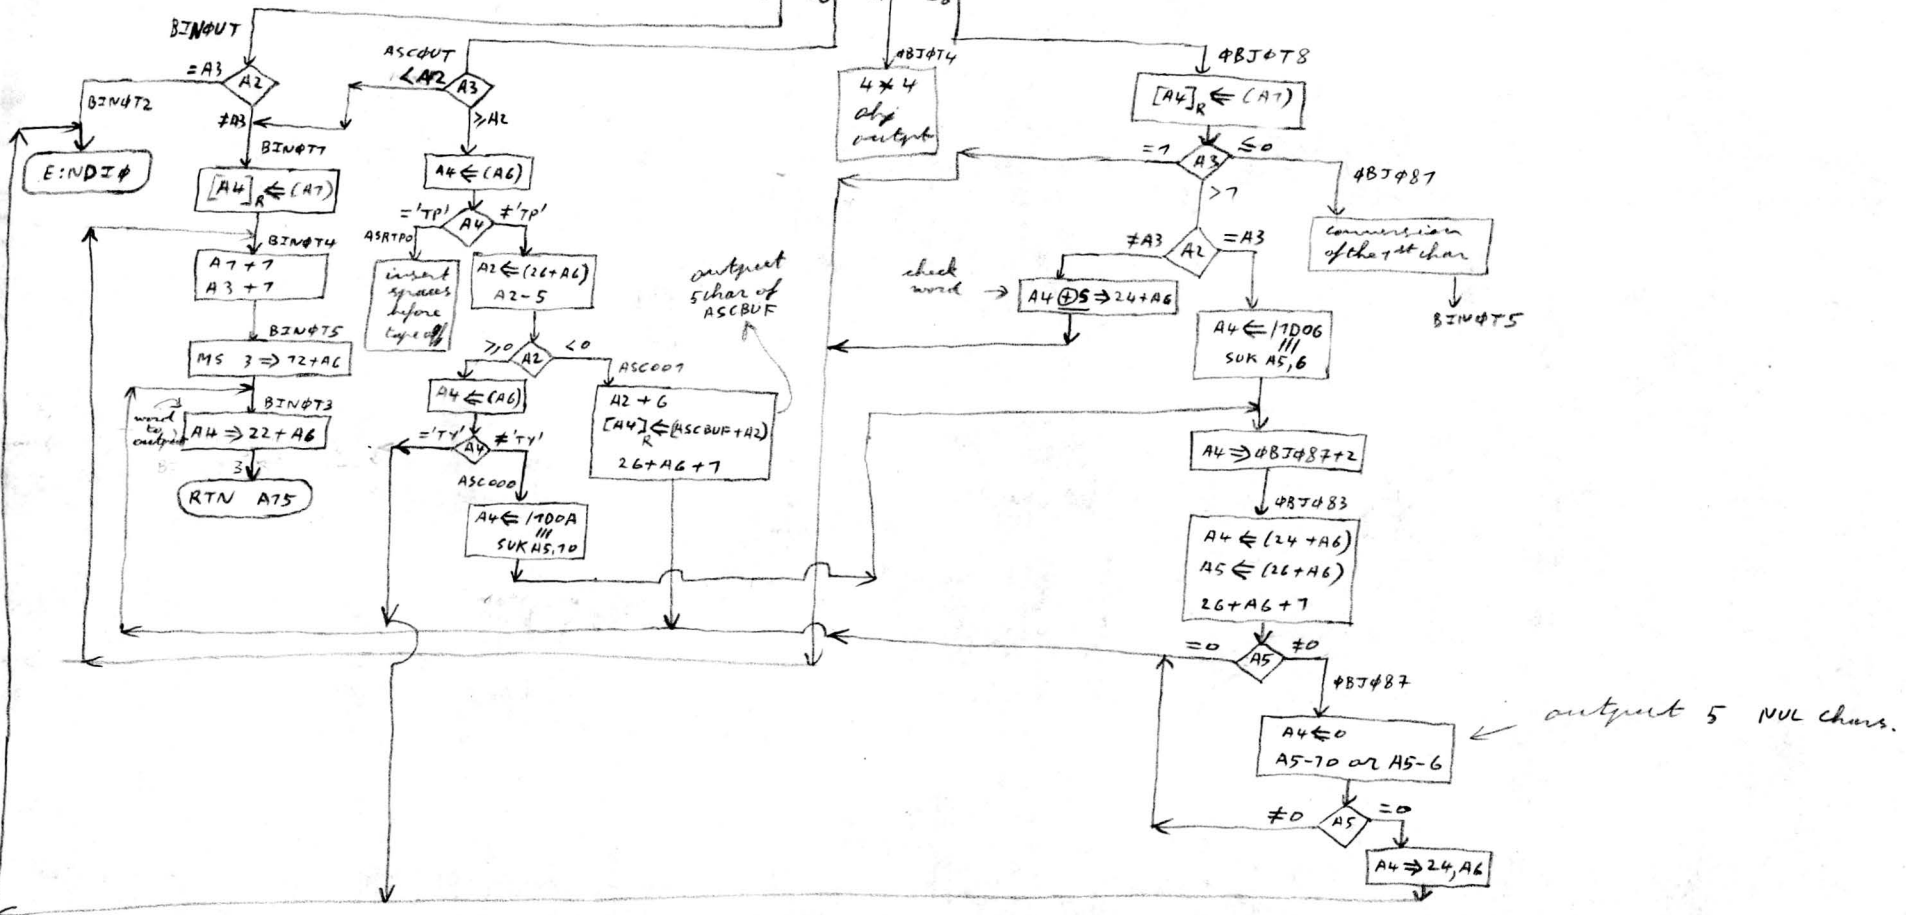 BINØUT
=A3
A2
BINØT2
≠A3
E:NDIØ
BINØT1
[A4]R ⇐ (A1)
BINØT4
A1 + 1
A3 + 1
BINØT5
MS 3 ⇒ 12+A6
word
to
output
BINØT3
A4 ⇒ 22 + A6
3
RTN A15
ASCØUT
<A2
A3
≥A2
A4 ⇐ (A6)
='TP'
A4
≠'TP'
ASRTP0
insert
spaces
before
tape off
A2 ⇐ (26+A6)
A2-5
≥0
A2
<0
ASC001
A4 ⇐ (A6)
='TY'
A4
≠'TY'
ASC000
A4 ⇐ /1D0A
SUK A5,10
output
5 char of
ASCBUF
A2 + 6
[A4]R ⇐ (ASCBUF+A2)
26+A6+1
ØBJØT4
4 * 4
obj
output
ØBJØT8
[A4]R ⇐ (A1)
=1
A3
≤0
>1
ØBJØ81
conversion
of the 1st char
BINØT5
≠A3
A2
=A3
check
word
A4 ⊕ 5 ⇒ 24+A6
A4 ⇐ /1D06
SUK A5,6
A4 ⇒ ØBJØ87+2
ØBJØ83
A4 ⇐ (24 +A6)
A5 ⇐ (26+A6)
26+A6+1
=0
A5
≠0
ØBJØ87
A4 ⇐ 0
A5-10 or A5-6
output 5 NUL chars.
≠0
A5
=0
A4 ⇒ 24,A6